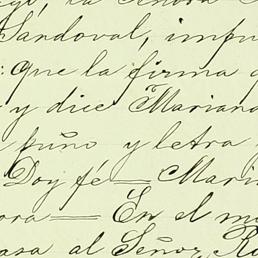 la Señora
Sandoval, impu
: que la firma
y dice "Mariana
puño y letra
Doy fé = Mari
ora = En el m
asa al Señor, Ro